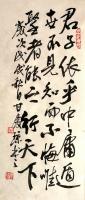 君子依乎中庸遁
世不見知而不悔惟
聖者能之行天下
歲次戊戌秋月甘肅